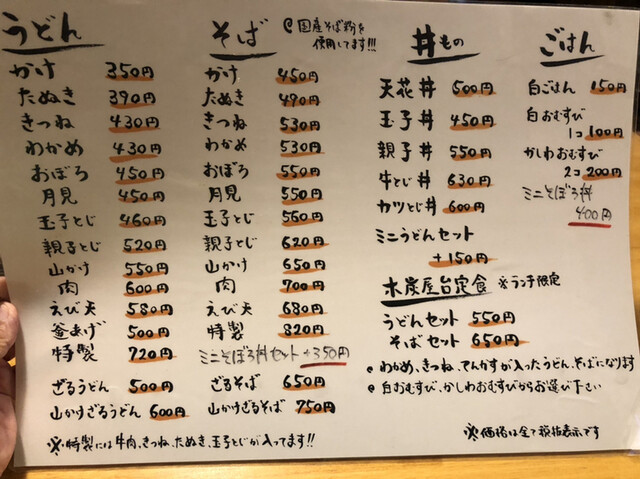 うどん
かけ 350円
たぬき 390円
きつね 430円
わかめ 430円
おぼろ 450円
月見 450円
玉子とじ 460円
親子とじ 520円
山かけ 550円
肉 600円
えび天 580円
釜あげ 500円
特製 720円
ざるうどん 500円
山かけざるうどん 600円
※特製には牛肉、きつね、たぬき、玉子とじが入ってます!!
そば
@国産そば粉を
使用してます!!!
かけ 450円
たぬき 490円
きつね 530円
わかめ 530円
おぼろ 550円
月見 550円
玉子とじ 560円
親子とじ 620円
山かけ 650円
肉 700円
えび天 680円
特製 820円
ミニそぼろ丼セット +350円
ざるそば 650円
山かけざるそば 750円
丼もの
天花丼 500円
玉子丼 450円
親子丼 550円
牛とじ丼 630円
カツとじ丼 600円
ミニうどんセット
+150円
ごはん
白ごはん 150円
白おむすび
1コ 100円
かしわおむすび
2コ 200円
ミニそぼろ丼
400円
屋台定食 ※ランチ限定
うどんセット 550円
そばセット 650円
@わかめ、きつね、てんかすが入ったうどん、そばになります
@白おむすび、かしわおむすびからお選び下さい
※価格は全て税抜表示です